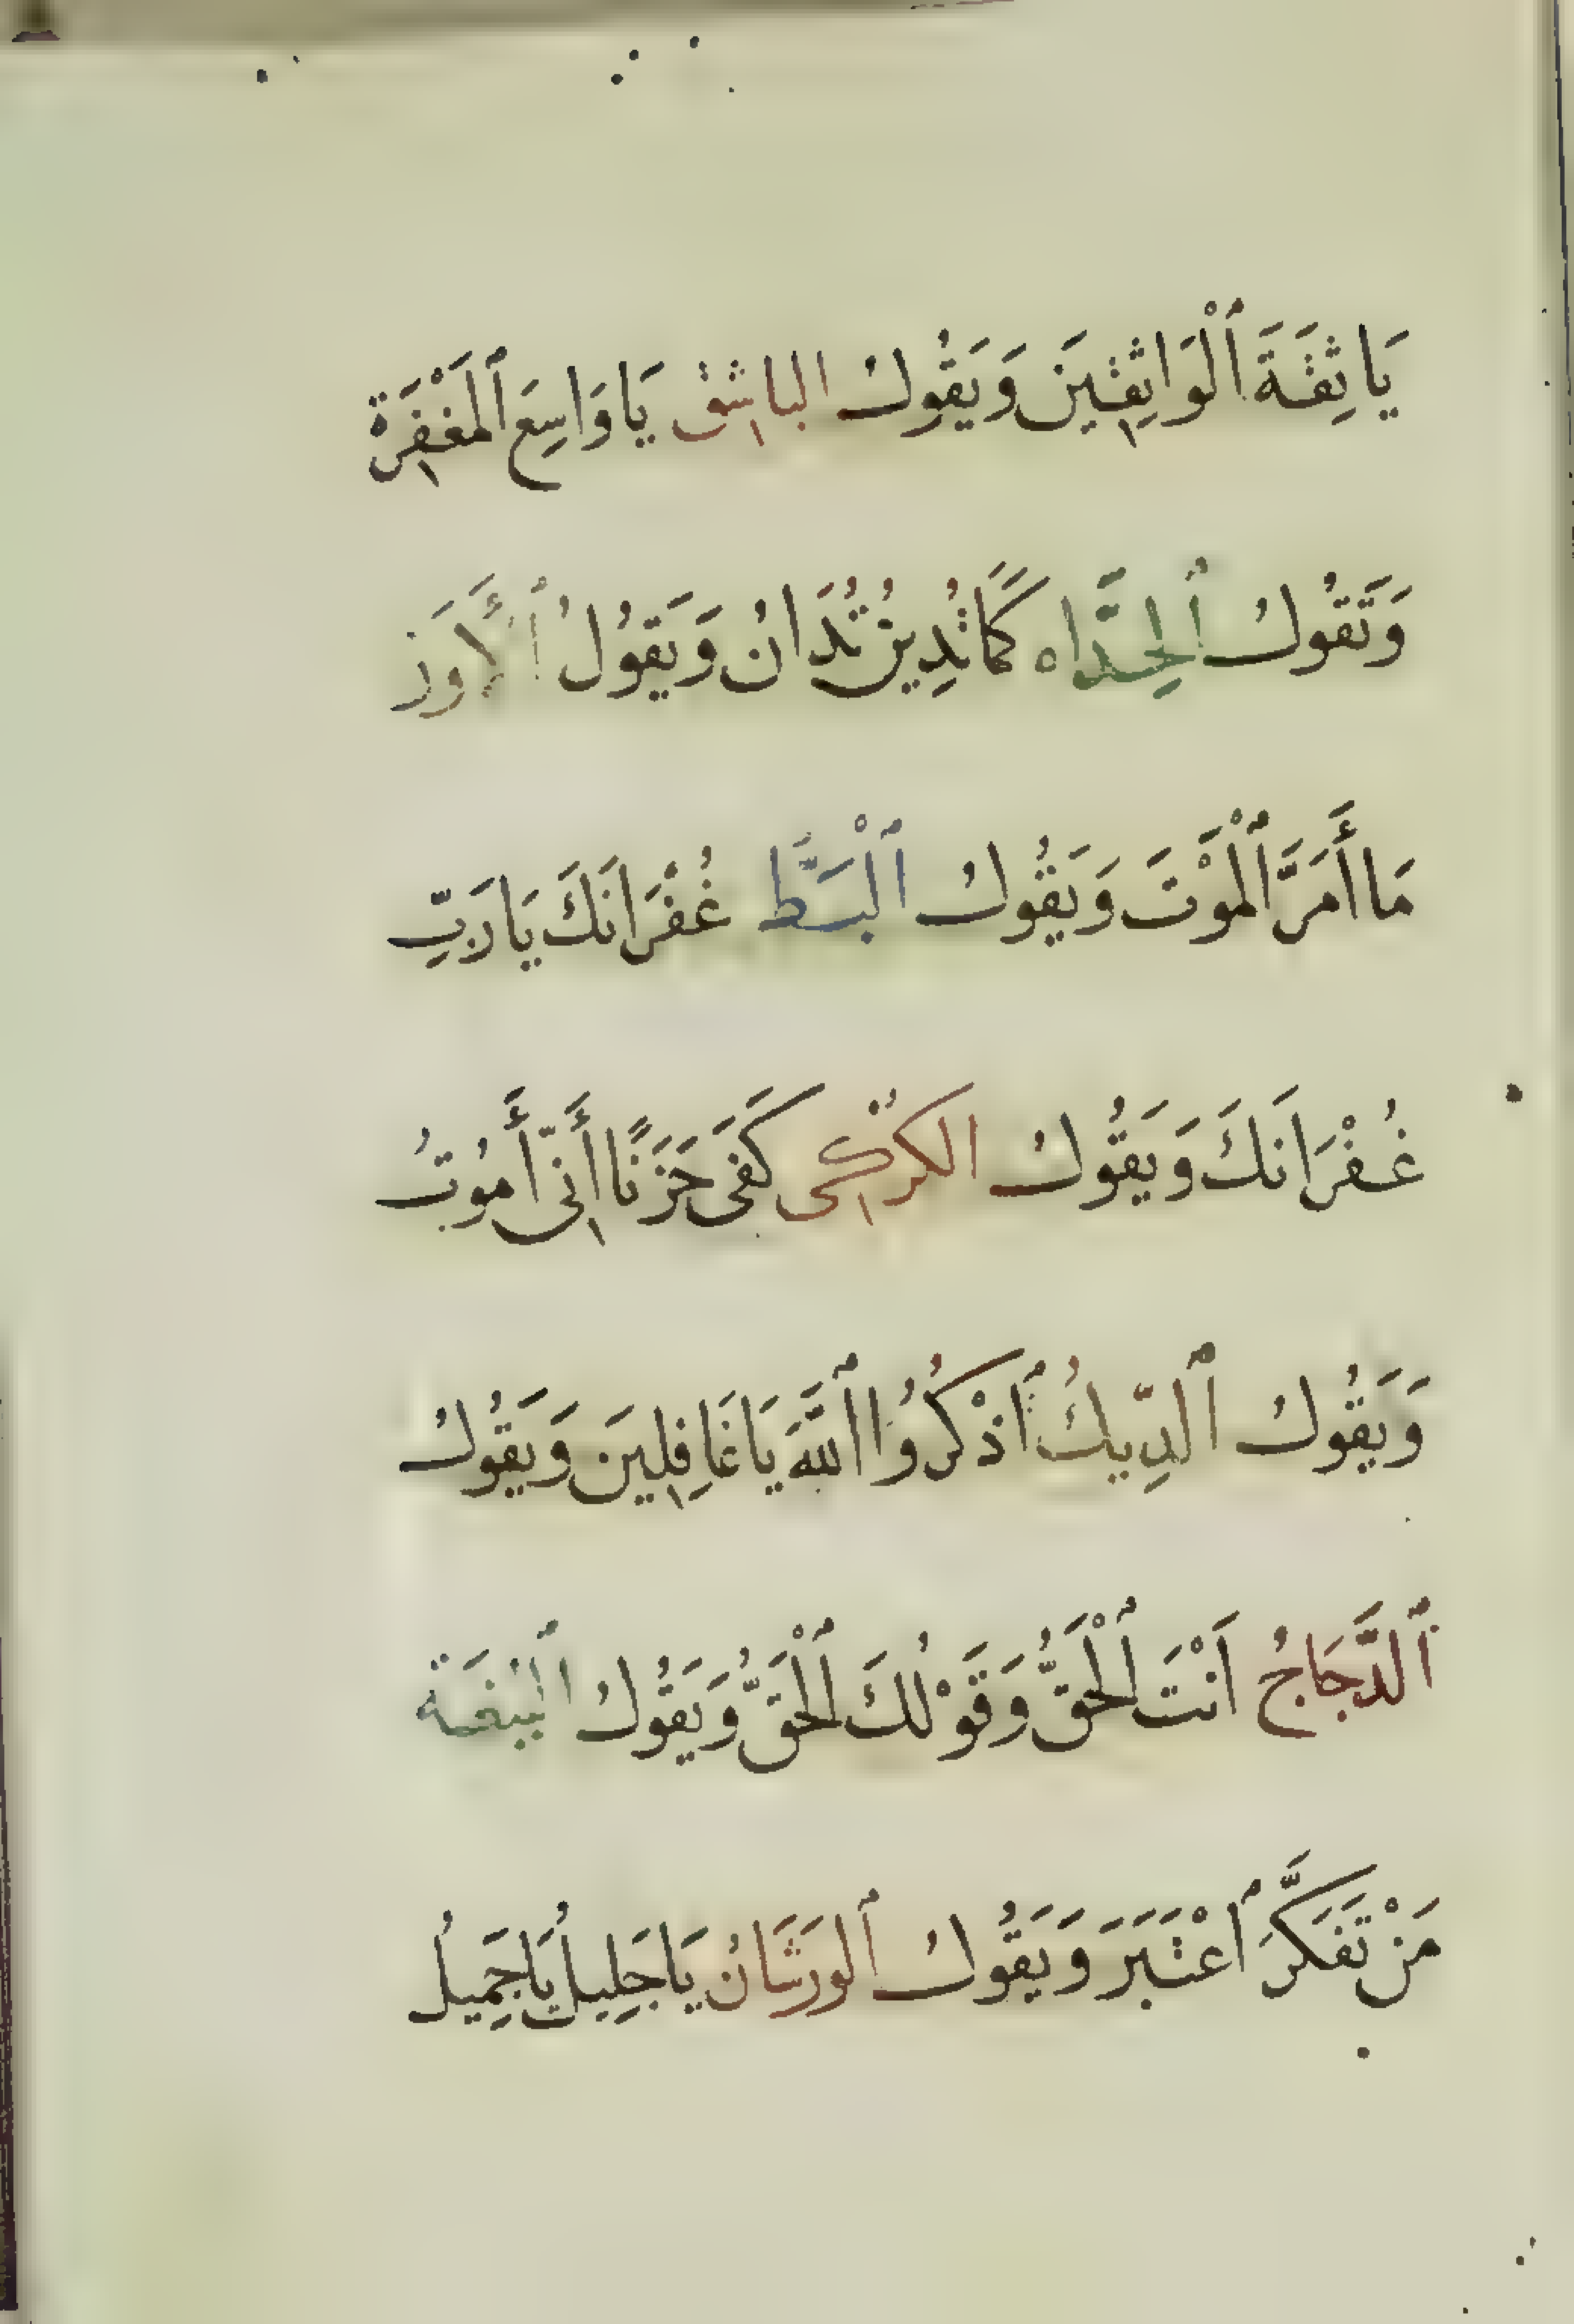 يَا ثِقَةَ ٱلْوَاثِقِينَ وَيَقُولُ الباشق يَا وَاسِعَ ٱلمَغْفِرَة
وَتَقُولُ ٱلحِدَّاه كَمَا تُدِينُ تُدَانُ وَيَقُولُ ٱلأَوَز
مَا أَمَرَّ ٱلْمَوْتَ وَيَقُولُ ٱلْبَطَّ غُفْرَانَكَ يَا رَبِّ
غُفْرَانَكَ وَيَقُولُ الكُرْكِي كَفَى حَزَنًا أَنِّي أَمُوتُ
وَيَقُولُ ٱلدِّيكُ ٱذْكُرُوا ٱللَّهَ يَا غَافِلِينَ وَيَقُولُ
ٱلدَّجَاجُ اَنْتَ ٱلْحَقُّ وَقَوْلُكَ ٱلْحَقُّ وَيَقُولُ
مَنْ تَفَكَّرَ ٱعْتَبَرَ وَيَقُولُ ٱلوَرَشَانُ يَا جَلِيلُ يَا جَمِيلُ